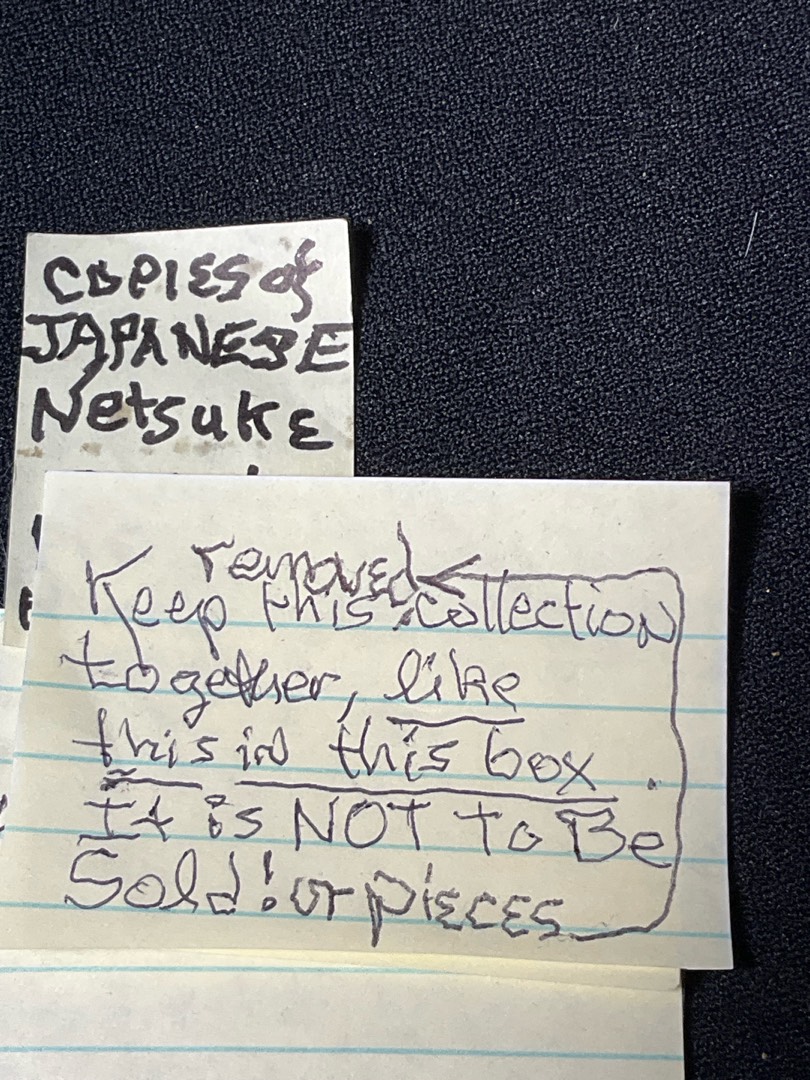 COPIES of
JAPANESE
Netsuke
removed
Keep this collection
together, like
this in this box.
It is NOT to Be
Sold! or pieces